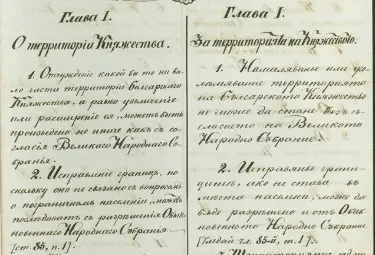 Глава I.
О территоріи Княжества.
1. Отчужденіе какой бы то ни бы-
ло части территоріи болгарскаго
Княжества, а равно увеличеніе
или расширеніе ея, можетъ быть
произведено не иначе какъ съ со-
гласія Великаго Народнаго Соб-
ранія.
2. Исправленіе границъ, по-
скольку оно не связано съ вопросомъ
о пограничномъ населеніи, можетъ
послѣдовать съ разрѣшенія Обык-
новеннаго Народнаго Собранія
[ст. 85, п. 1].
Глава I.
За территорията на Княжеството.
1. Намаляванье или уго-
лѣмяванье територията
на Българското Княжество
не може да стане безъ съ-
гласието на Великото
Народно Събрание.
2. Исправянье грани-
цитѣ, ако не става въ
мѣста населени, може да
бѫде разрѣшено и отъ Обик-
новенното Народно Събрание
[Гледай чл. 85-й, т. 1].